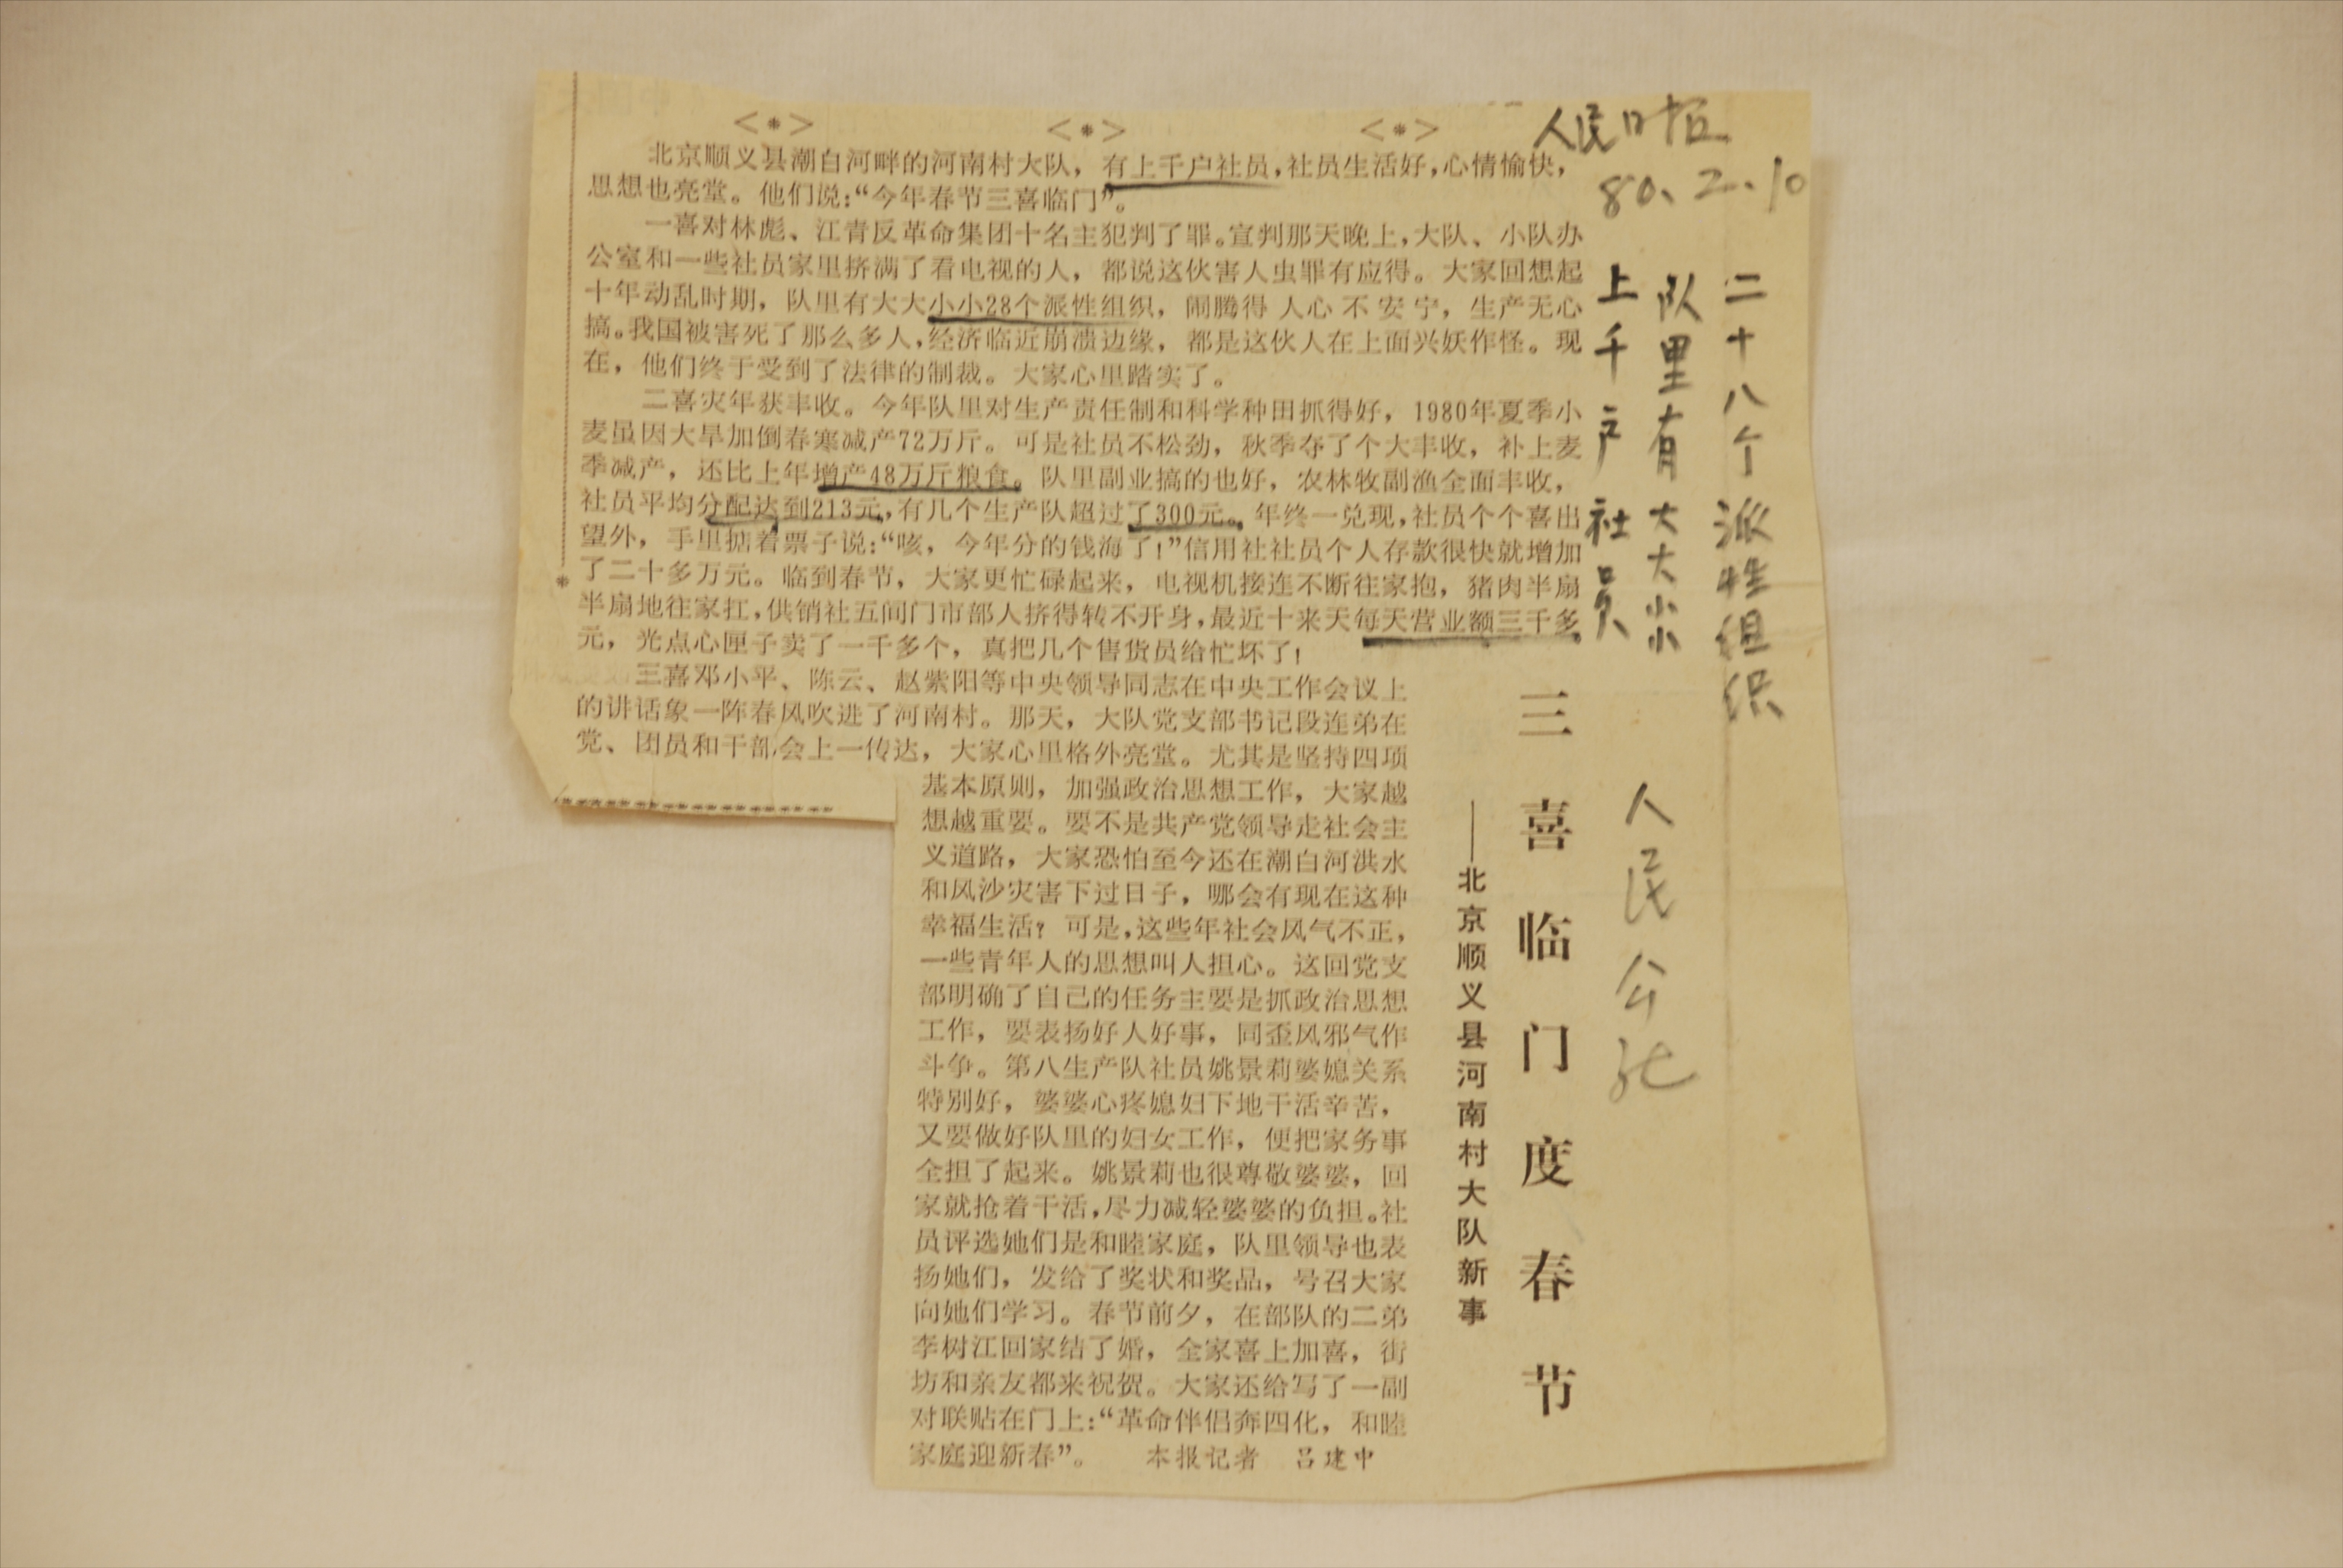 人民日报
80、2.10
二十八个派性组织
队里有大大小小
上千户社员
人民公社
三喜临门度春节
——北京顺义县河南村大队新事
北京顺义县潮白河畔的河南村大队，有上千户社员，社员生活好，心情愉快，
思想也亮堂。他们说：“今年春节三喜临门”。
一喜对林彪、江青反革命集团十名主犯判了罪。宣判那天晚上，大队、小队办
公室和一些社员家里挤满了看电视的人，都说这伙害人虫罪有应得。大家回想起
十年动乱时期，队里有大大小小28个派性组织，闹腾得人心不安宁，生产无心
搞。我国被害死了那么多人，经济临近崩溃边缘，都是这伙人在上面兴妖作怪。现
在，他们终于受到了法律的制裁。大家心里踏实了。
二喜灾年获丰收。今年队里对生产责任制和科学种田抓得好，1980年夏季小
麦虽因大旱加倒春寒减产72万斤。可是社员不松劲，秋季夺了个大丰收，补上麦
季减产，还比上年增产48万斤粮食。队里副业搞的也好，农林牧副渔全面丰收，
社员平均分配达到213元，有几个生产队超过了300元。年终一兑现，社员个个喜出
望外，手里掂着票子说：“咳，今年分的钱海了！”信用社社员个人存款很快就增加
了二十多万元。临到春节，大家更忙碌起来，电视机接连不断往家抱，猪肉半扇
半扇地往家扛，供销社五间门市部人挤得转不开身，最近十来天每天营业额三千多
元，光点心匣子卖了一千多个，真把几个售货员给忙坏了！
三喜邓小平、陈云、赵紫阳等中央领导同志在中央工作会议上
的讲话象一阵春风吹进了河南村。那天，大队党支部书记段连弟在
党、团员和干部会上一传达，大家心里格外亮堂。尤其是坚持四项
基本原则，加强政治思想工作，大家越
想越重要。要不是共产党领导走社会主
义道路，大家恐怕至今还在潮白河洪水
和风沙灾害下过日子，哪会有现在这种
幸福生活？可是，这些年社会风气不正，
一些青年人的思想叫人担心。这回党支
部明确了自己的任务主要是抓政治思想
工作，要表扬好人好事，同歪风邪气作
斗争。第八生产队社员姚景莉婆媳关系
特别好，婆婆心疼媳妇下地干活辛苦，
又要做好队里的妇女工作，便把家务事
全担了起来。姚景莉也很尊敬婆婆，回
家就抢着干活，尽力减轻婆婆的负担。社
员评选她们是和睦家庭，队里领导也表
扬她们，发给了奖状和奖品，号召大家
向她们学习。春节前夕，在部队的二弟
李树江回家结了婚，全家喜上加喜，街
坊和亲友都来祝贺。大家还给写了一副
对联贴在门上：“革命伴侣奔四化，和睦
家庭迎新春”。 本报记者 吕建中